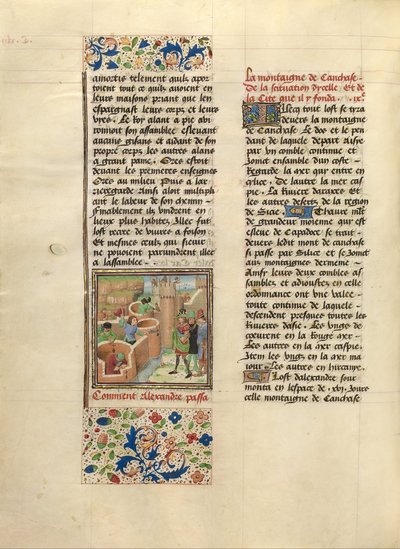 amortis telement quilz apor
toient tout ce quilz avoient en
leurs maisons priant que len
espargnast leurs corps et leurs
vyes. Le Roy alant a pie avi
ronnoit son assamblee eslevant
aucuns gisans et aidant de son
propre corps les autres alans
a grant paine. Ores estoit
devant les premieres enseignes
Ores au milieu Puis a lar
rieregarde Ainsi aloit multipli
ant le labeur de son chemin
Finablement ilz vindrent en
lieux plus habitez Illec fut
lost recree de vivres a foison
Et mesmes ceulz qui sieuir
ne pouoient parvindrent illec
a lassamblee
Comment Alexandre passa
la montaigne de Cauchase
De la scituation dycelle Et de
la Cite que il y fonda. ix.e
Illecq tout lost se tira
devers la montaigne
de Cauchase Le dos et le pen
dant de laquele depart Aise
par ung comble continue et
Joinct ensamble dun coste
Regarde la mer qui entre en
cilice De lautre la mer cas
pie La Riviere daraxes et
les autres desertz de la region
de Sicie Thaure mont
de grandeur moienne qui est
esleue de Capadoce se trait
devers ledit mont de cauchase
si passe par Silice et se Joinct
aux montaignes dermenie
Ainsy leurs deux combles as
samblez et adioustez en celle
ordonnance ont une valee
toute continue de laquele
descendent presques toutes les
Rivieres dasie Les ungs de
cueurent en la Rouge mer
Les autres en la mer caspie
Item les ungs en la mer ma
iour Les autres en hircanye
Lost dalexandre sour
monta en lespace de .xvi. Jours
celle montaigne de Cauchase